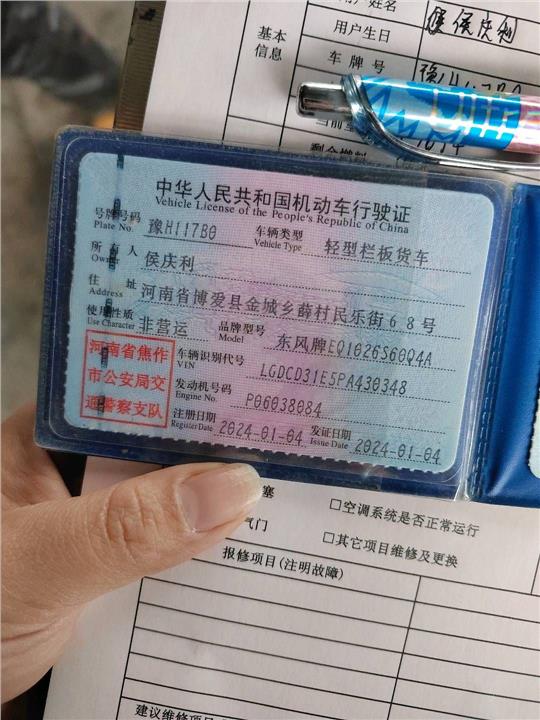 用户姓名
侯庆利
基本
信息
用户生日
车牌号
中华人民共和国机动车行驶证
Vehicle License of the People's Republic of China
号牌号码 豫H117B0 车辆类型 轻型栏板货车
Plate No. Vehicle Type
所有人 侯庆利
Owner
住址 河南省博爱县金城乡薛村民乐街68号
Address
使用性质 非营运 品牌型号 东风牌EQ1026S60Q4A
Use Character Model
河南省焦作
市公安局交
通警察支队
车辆识别代号 LGDCD31E5PA430348
VIN
发动机号码 P06038084
Engine No.
注册日期 2024-01-04 发证日期 2024-01-04
Register Date Issue Date
塞
□空调系统是否正常运行
气门
□其它项目维修及更换
报修项目(注明故障)
建议维修项目